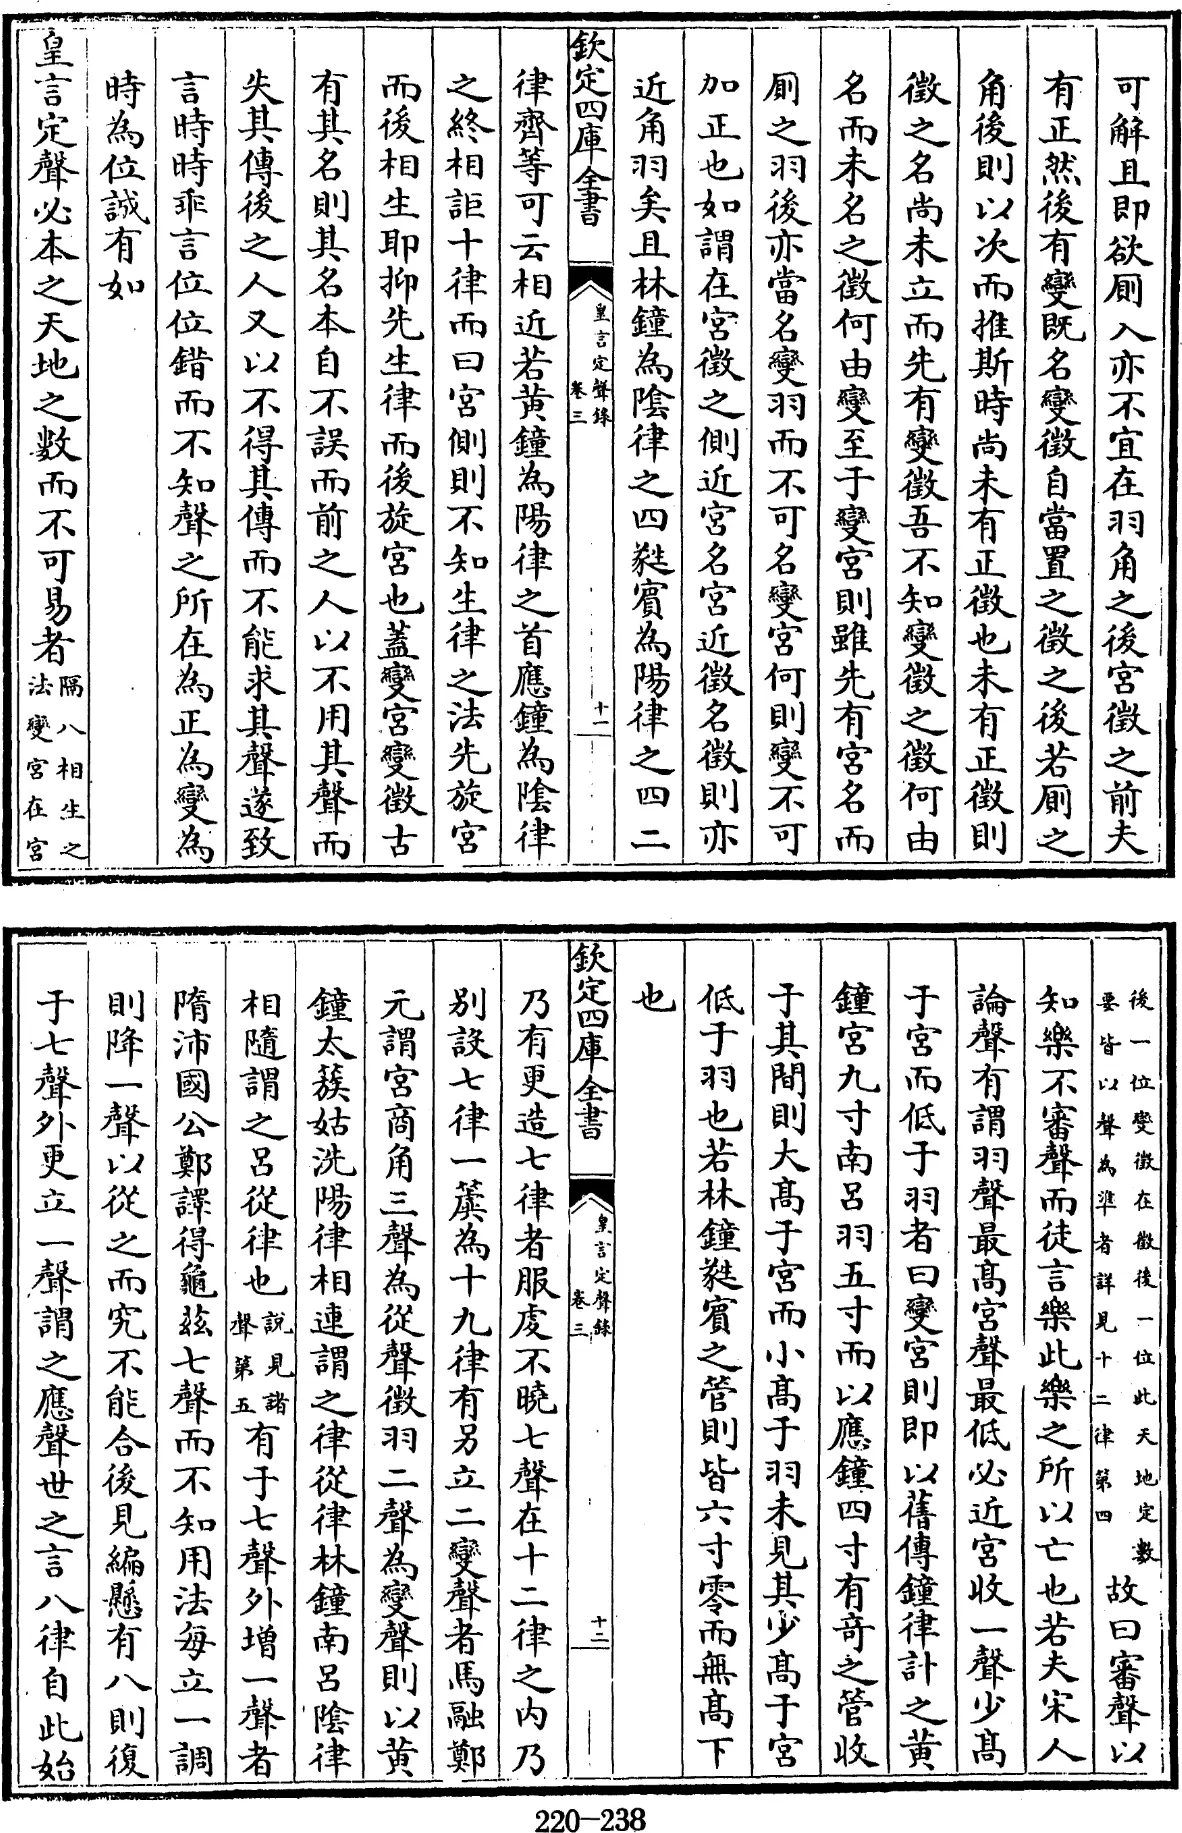 可解且即欲厠入亦不宜在羽角之後宮徵之前夫
有正然後有變既名變徵自當置之徵之後若厠之
角後則以次而推斯時尚未有正徵也未有正徵則
徵之名尚未立而先有變徵吾不知變徵之徵何由
名而未名之徵何由變至于變宮則雖先有宮名而
厠之羽後亦當名變羽而不可名變宮何則變不可
加正也如謂在宮徵之側近宮名宮近徵名徵則亦
近角羽矣且林鐘為陰律之四蕤賓為陽律之四二
欽定四庫全書
皇言定聲錄
卷三
十一
律齊等可云相近若黃鐘為陽律之首應鐘為陰律
之終相距十律而曰宮側則不知生律之法先旋宮
而後相生耶抑先生律而後旋宮也蓋變宮變徵古
有其名則其名本自不誤而前之人以不用其聲而
失其傳後之人又以不得其傳而不能求其聲遂致
言時時乖言位位錯而不知聲之所在為正為變為
時為位誠有如
皇言定聲必本之天地之數而不可易者隔八相生之
法變宮在宮
後一位變徵在徵後一位此天地定數
要皆以聲為準者詳見十二律第四
故曰審聲以
知樂不審聲而徒言樂此樂之所以亡也若夫宋人
論聲有謂羽聲最高宮聲最低必近宮收一聲少高
于宮而低于羽者曰變宮則即以舊傳鐘律計之黃
鐘宮九寸南呂羽五寸而以應鐘四寸有奇之管收
于其間則大高于宮而小高于羽未見其少高于宮
低于羽也若林鐘蕤賓之管則皆六寸零而無高下
也
欽定四庫全書
皇言定聲錄
卷三
十二
乃有更造七律者服虔不曉七聲在十二律之内乃
別設七律一簴為十九律有另立二變聲者馬融鄭
元謂宮商角三聲為從聲徵羽二聲為變聲則以黃
鐘太蔟姑洗陽律相連謂之律從律林鐘南呂陰律
相隨謂之呂從律也說見諸
聲第五
有于七聲外増一聲者
隋沛國公鄭譯得龜兹七聲而不知用法每立一調
則降一聲以從之而究不能合後見編懸有八則復
于七聲外更立一聲謂之應聲世之言八律自此始
220-238